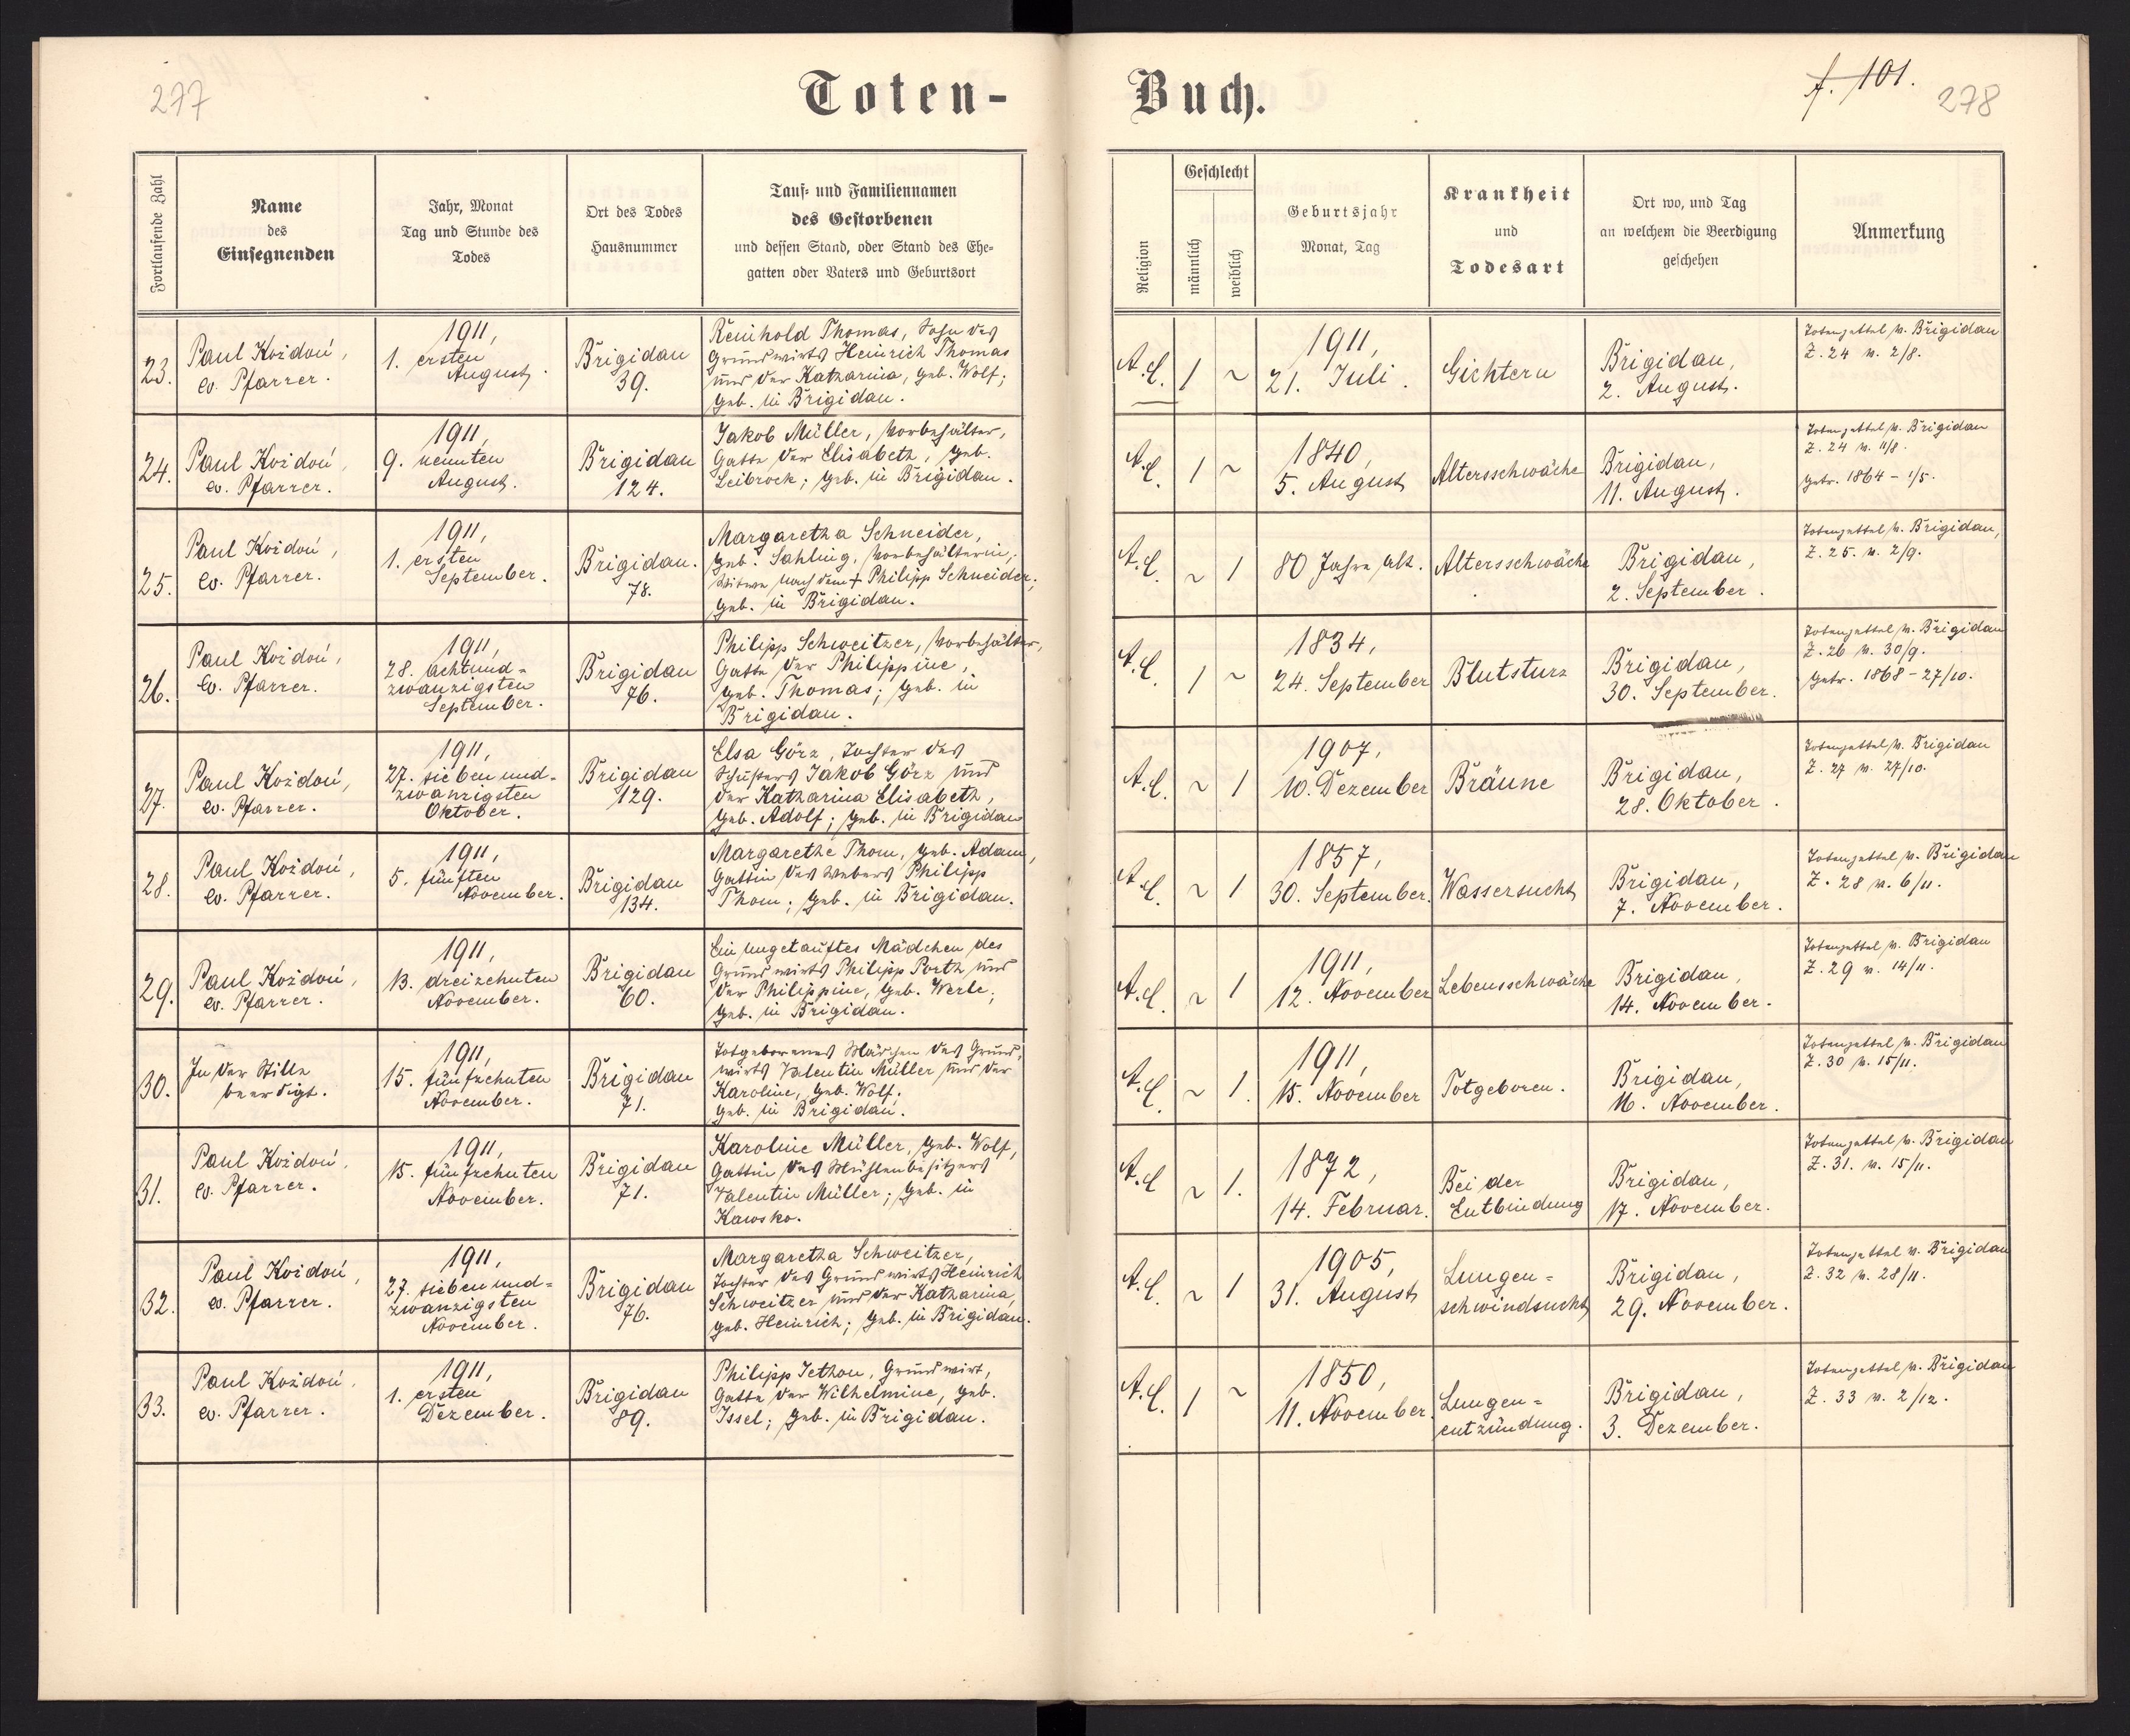 277
Toten-
Buch.
f. 101.
278
Fortlaufende Zahl
Name
des
Einsegnenden
Jahr, Monat
Tag und Stunde des
Todes
Ort des Todes
Hausnummer
Tauf- und Familiennamen
des Gestorbenen
und dessen Stand, oder Stand des Ehe-
gatten oder Vaters und Geburtsort
Religion
Geschlecht
männlich
weiblich
Geburtsjahr
Monat, Tag
Krankheit
und
Todesart
Ort wo, und Tag
an welchem die Beerdigung
geschehen
Anmerkung
23.
Paul Koždoń,
ev. Pfarrer.
1911,
1. ersten
August.
Brigidau
39.
Reinhold Thomas, Sohn des
Grundwirts Heinrich Thomas
und der Katharina, geb. Wolf;
geb. in Brigidau.
A.C.
1
~
1911,
21. Juli.
Gichtern
Brigidau,
2. August.
Totenzettel v. Brigidau
Z. 24 v. 2/8.
24.
Paul Koždoń,
ev. Pfarrer.
1911,
9. neunten
August.
Brigidau
124.
Jakob Müller, Vorbehälter,
Gatte der Elisabeth, geb.
Leibrock; geb. in Brigidau.
A.C.
1
~
1840,
5. August
Altersschwäche
Brigidau,
11. August.
Totenzettel v. Brigidau
Z. 24 v. 11/8.
getr. 1864 - 1/5.
25.
Paul Koždoń,
ev. Pfarrer.
1911,
1. ersten
September.
Brigidau.
78.
Margaretha Schneider,
geb. Sahling, Vorbehälterin,
Witwe nach dem + Philipp Schneider;
geb. in Brigidau.
A.C.
~
1
80 Jahre alt.
Altersschwäche
Brigidau,
2. September.
Totenzettel v. Brigidau,
Z. 25. v. 2/9.
26.
Paul Koždoń,
ev. Pfarrer.
1911,
28. achtund-
zwanzigsten
September.
Brigidau
76.
Philipp Schweitzer, Vorbehälter,
Gatte der Philippine,
geb. Thomas; geb. in
Brigidau.
A.C.
1
~
1834,
24. September
Blutsturz
Brigidau,
30. September.
Totenzettel v. Brigidau
Z. 26 v. 30/9.
getr. 1868 - 27/10.
27.
Paul Koždoń,
ev. Pfarrer.
1911,
27. siebenund-
zwanzigsten
Oktober.
Brigidau
129.
Elsa Görz, Tochter des
Schusters Jakob Görz und
der Katharina Elisabeth,
geb. Adolf; geb. in Brigidau
A.C.
~
1
1907,
10. Dezember
Bräune
Brigidau,
28. Oktober.
Totenzettel v. Brigidau
Z. 27 v. 27/10.
28.
Paul Koždoń,
ev. Pfarrer.
1911,
5. fünften
November.
Brigidau
134.
Margarethe Thom, geb. Adam,
Gattin des Webers Philipp
Thom; geb. in Brigidau.
A.C.
~
1
1857,
30. September.
Wassersucht
Brigidau,
7. November.
Totenzettel v. Brigidau
Z. 28 v. 6/11.
29.
Paul Koždoń,
ev. Pfarrer.
1911,
13. dreizehnten
November.
Brigidau
60.
Ein ungetauftes Mädchen des
Grundwirts Philipp Porth und
der Philippine, geb. Werle;
geb. in Brigidau.
A.C.
~
1
1911,
12. November
Lebensschwäche
Brigidau,
14. November.
Totenzettel v. Brigidau
Z. 29 v. 14/11.
30.
In der Stille
beerdigt.
1911,
15. fünfzehnten
November.
Brigidau
71.
Totgeborenes Mädchen des Grund-
wirts Valentin Müller und der
Karoline, geb. Wolf;
geb. in Brigidau.
A.C.
~
1.
1911,
15. November
Totgeboren.
Brigidau,
16. November.
Totenzettel v. Brigidau
Z. 30 v. 15/11.
31.
Paul Koždoń,
ev. Pfarrer.
1911,
15. fünfzehnten
November.
Brigidau
71.
Karoline Müller, geb. Wolf,
Gattin des Mühlenbesitzers
Valentin Müller; geb. in
Kawsko.
A.C
~
1.
1872,
14. Februar.
Bei der
Entbindung
Brigidau,
17. November.
Totenzettel v. Brigidau
Z. 31. v. 15/11.
32.
Paul Koždoń,
ev. Pfarrer.
1911,
27. siebenund-
zwanzigsten
November.
Brigidau
76.
Margaretha Schweitzer,
Tochter des Grundwirts Heinrich
Schweitzer und der Katharina,
geb. Heinrich; geb. in Brigidau.
A.C.
~
1
1905,
31. August
Lungen-
schwindsucht
Brigidau,
29. November.
Totenzettel v. Brigidau
Z. 32 v. 28/11.
33.
Paul Koždoń,
ev. Pfarrer.
1911,
1. ersten
Dezember.
Brigidau
89.
Philipp Jethon, Grundwirt,
Gatte der Wilhelmine, geb.
Issel; geb. in Brigidau.
A.C.
1
~
1850,
11. November.
Lungen-
entzündung.
Brigidau,
3. Dezember.
Totenzettel v. Brigidau
Z. 33 v. 2/12.